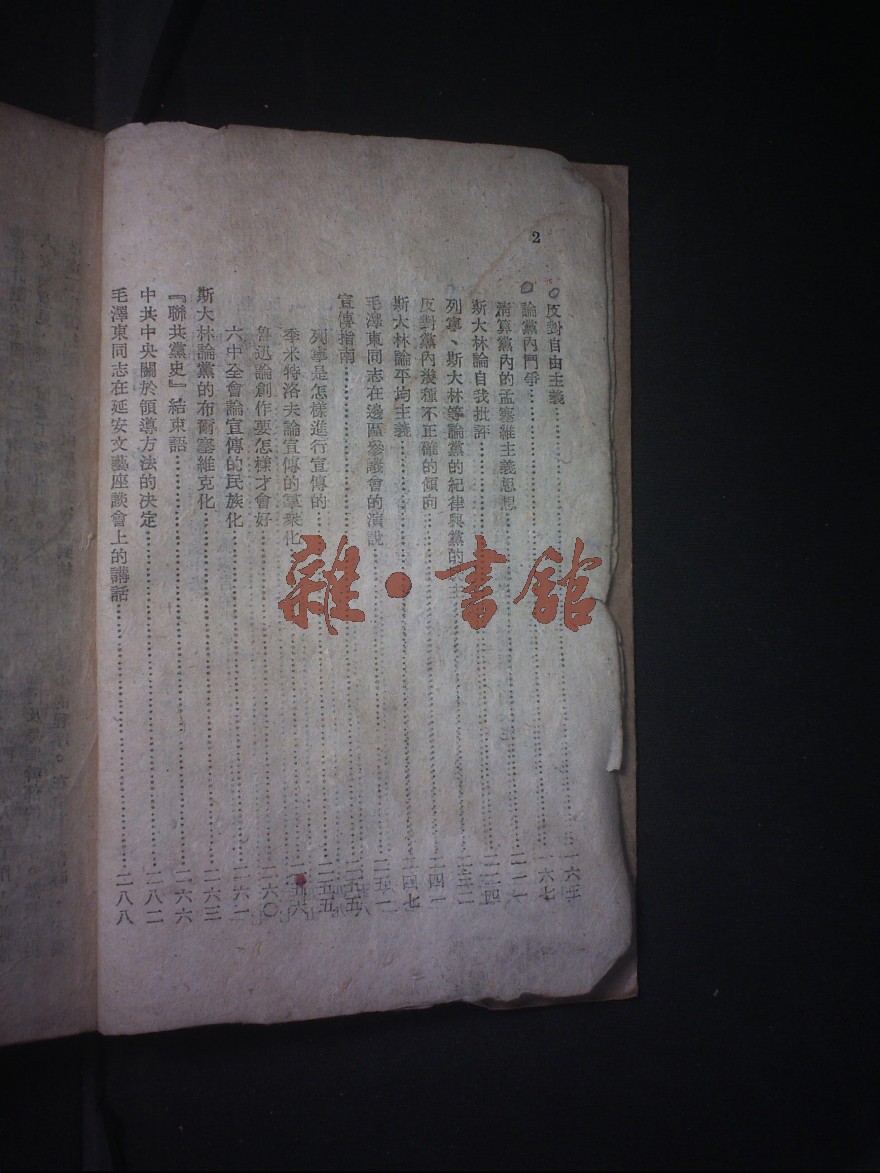 2
反對自由主義……一六三
論黨內鬥爭……一六七
清算黨內的孟塞維主義思想……二一一
斯大林論自我批評……二二四
列寧、斯大林等論黨的紀律與黨的民主……二三二
反對黨內幾種不正確的傾向……二四一
斯大林論平均主義……二四七
毛澤東同志在邊區參議會的演說……二五一
宣傳指南……二五五
列寧是怎樣進行宣傳的……二五五
季米特洛夫論宣傳的羣衆化……二五六
魯迅論創作要怎樣才會好……二六〇
六中全會論宣傳的民族化……二六二
斯大林論黨的布爾塞維克化……二六三
『聯共黨史』結束語……二六六
中共中央關於領導方法的决定……二八二
毛澤東同志在延安文藝座談會上的講話……二八八
雜·書館